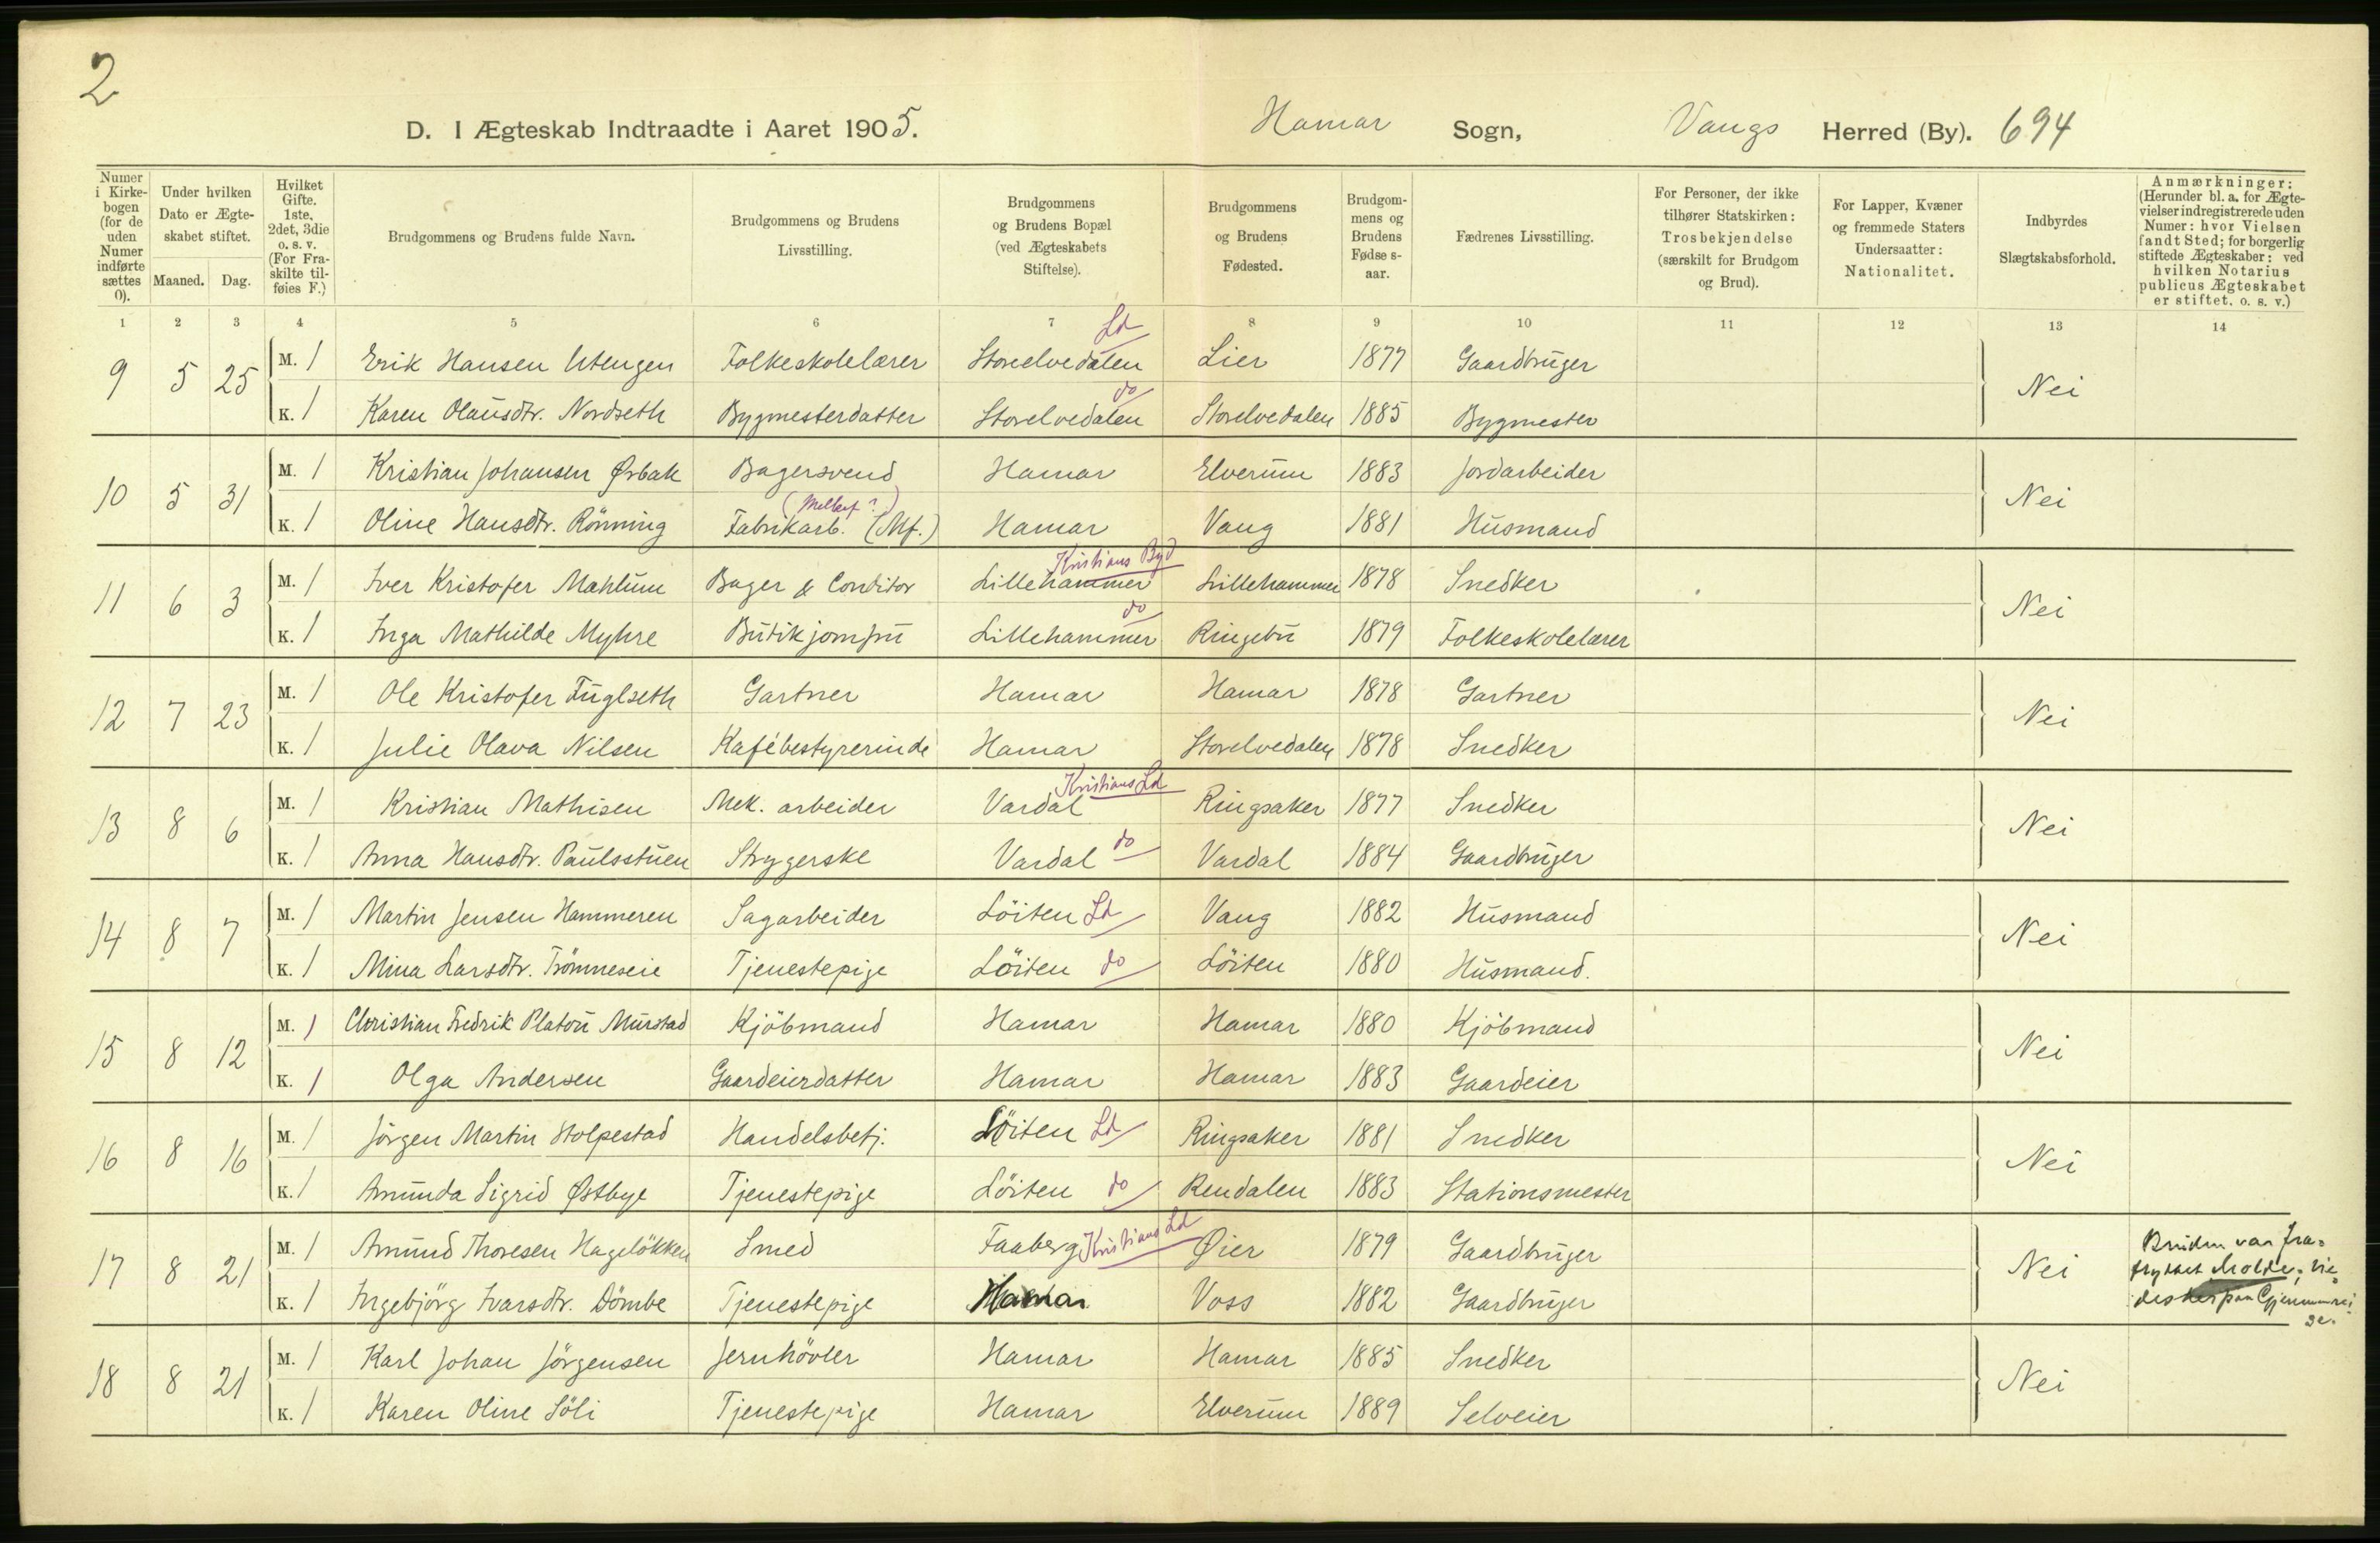 2
D. I Ægteskab Indtraadte i Aaret 1905. Hamar Sogn, Vangs Herred (By). 694
Numer i Kirkebogen (for de uden Numer indførte sættes 0). Under hvilken Dato er Ægteskabet stiftet. Maaned. Dag. Hvilket Gifte. 1ste, 2det, 3die o. s. v. (For Fraskilte tilføies F.) Brudgommens og Brudens fulde Navn. Brudgommens og Brudens Livsstilling. Brudgommens og Brudens Bopæl (ved Ægteskabets Stiftelse). Brudgommens og Brudens Fødested. Brudgommens og Brudens Fødselsaar. Fædrenes Livsstilling. For Personer, der ikke tilhører Statskirken: Trosbekjendelse (særskilt for Brudgom og Brud). For Lapper, Kvæner og fremmede Staters Undersaatter: Nationalitet. Indbyrdes Slægtskabsforhold. Anmærkninger: (Herunder bl. a. for Ægtevielser indregistrerede uden Numer: hvor Vielsen fandt Sted; for borgerlig stiftede Ægteskaber: ved hvilken Notarius publicus Ægteskabet er stiftet. o. s. v.)
1 2 3 4 5 6 7 8 9 10 11 12 13 14
9 5 25 M. 1 Erik Hansen Utengen Folkeskolelærer Storelvedalen Ld Lier 1877 Gaardbruger Nei
K. 1 Karen Olausdtr. Nordseth Bygmesterdatter Storelvedalen do Storelvedalen 1885 Bygmester
10 5 31 M. 1 Kristian Johansen Ørbak Bagersvend Hamar Elverum 1883 Jordarbeider Nei
K. 1 Oline Hansdtr. Rönning Fabrikarb. (Mf.) Hamar Vang 1881 Husmand
11 6 3 M. 1 Iver Kristofer Mæhlum Bager & Conditor Lillehammer Kristians Byd Lillehammer 1878 Snedker Nei
K. 1 Inga Mathilde Myhre Butikjomfru Lillehammer do Ringebu 1879 Folkeskolelærer
12 7 23 M. 1 Ole Kristofer Fuglseth Gartner Hamar Hamar 1878 Gartner Nei
K. 1 Julie Olava Nilsen Kafébestyrerinde Hamar Storelvedalen 1878 Snedker
13 8 6 M. 1 Kristian Mathisen Mek. arbeider Vardal Kristians Ld Ringsaker 1877 Snedker Nei
K. 1 Anna Hansdtr. Paulsstuen Strygerske Vardal do Vardal 1884 Gaardbruger
14 8 7 M. 1 Martin Jensen Hammeren Sagarbeider Löiten Ld Vang 1882 Husmand Nei
K. 1 Mina Larsdtr. Trömneseie Tjenestepige Löiten do Löiten 1880 Husmand.
15 8 12 M. 1 Christian Fredrik Platou Murstad Kjöbmand Hamar Hamar 1880 Kjöbmand Nei
K. 1 Olga Andersen Gaardeierdatter Hamar Hamar 1883 Gaardeier
16 8 16 M. 1 Jörgen Martin Stolpestad Handelsbetj. Löiten Ld Ringsaker 1881 Snedker Nei
K. 1 Amunda Sigrid Østbye Tjenestepige Löiten do Rendalen 1883 Stationsmester
17 8 21 M. 1 Amund Thoresen Hagelökken Smed Faaberg Kristians Ld Øier 1879 Gaardbruger Nei Bruden var fra-
flyttet Molde;
K. 1 Ingebjörg Ivarsdtr. Dömbe Tjenestepige Hamar Voss 1882 Gaardbruger
18 8 21 M. 1 Karl Johan Jörgensen Jernhövler Hamar Hamar 1885 Snedker Nei
K. 1 Karen Oline Söli Tjenestepige Hamar Elverum 1889 Selveier